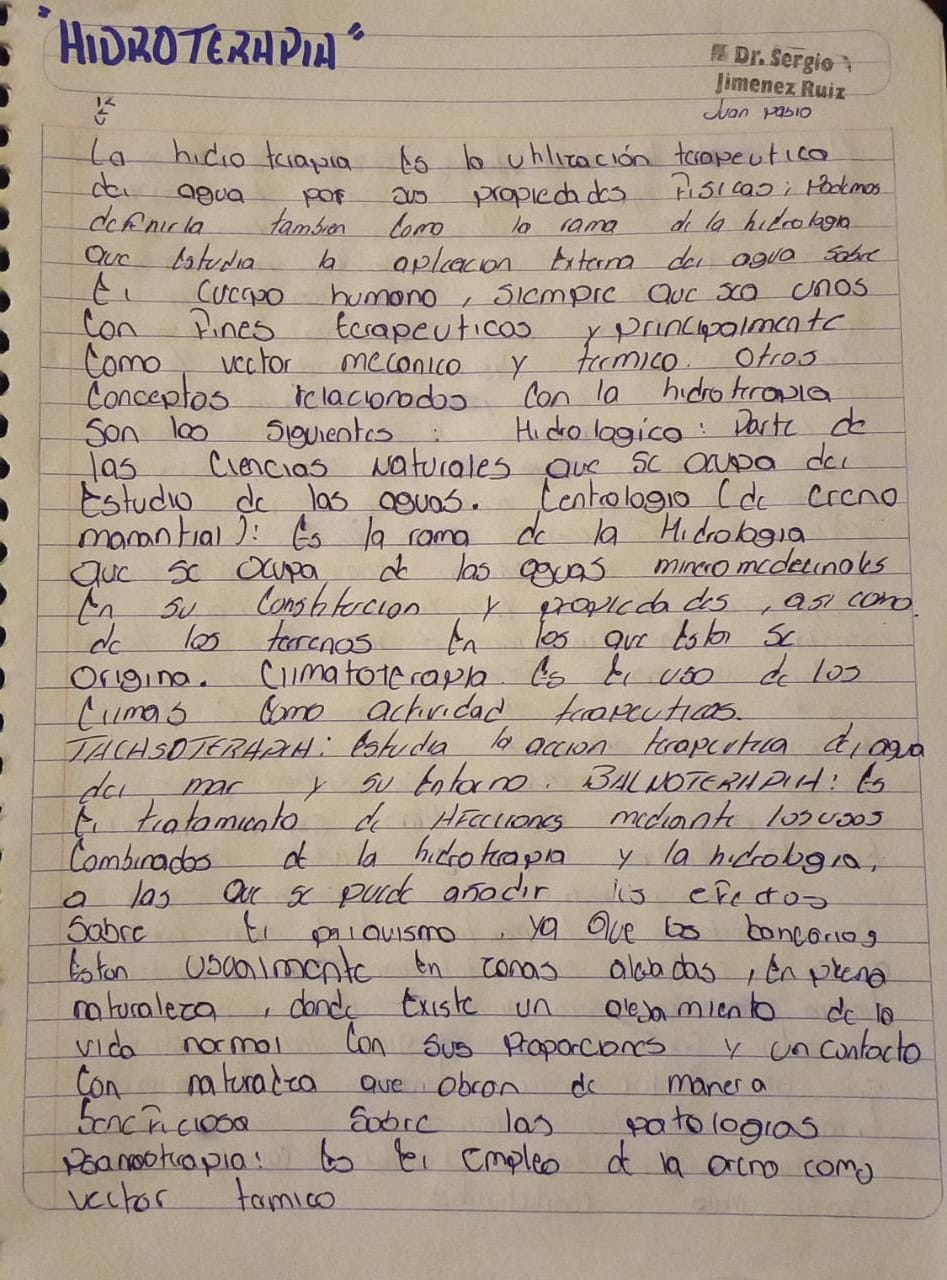 "HIDROTERAPIA"
Dr. Sergio
Jimenez Ruiz
Juan Pablo
La hidroterapia Es la utilización terapeutica
del agua por sus propiedades Fisicas; Podemos
definirla tambien como la rama de la hidrologia
que Estudia la aplicacion Externa del agua sobre
El cuerpo humano, siempre que sea unos
con Fines terapeuticos y principalmente
como vector mecanico y termico. Otros
Conceptos relacionados con la hidroterapia
son los siguientes: Hidrologico: Parte de
las Ciencias Naturales que se ocupa del
Estudio de las aguas. Centrologio (de creno
manantial): Es la rama de la Hidrologia
que se ocupa de las aguas mineromedecinales
En su Constitucion y propiedades, asi como
de los terrenos En los que Estan se
origina. Climatoterapia Es El uso de los
Climas como actividad terapeuticas.
TACHSOTERAPIA: Estudia la accion terapeutica del agua
del mar y su Entorno. BALNOTERAPIA: Es
El tratamiento de AFecciones mediante los usos
Combinados de la hidroterapia y la hidrologia,
a las que se puede añadir los eFectos
Sobre El, ya que los
Estan usualmente En zonas alejadas, En plena
naturaleza, donde Existe un alejamiento de la
vida normal Con sus Proporciones y un contacto
Con naturaleza que obran de manera
BeneFiciosa Sobre las patologias
Es El Empleo de la arena como
vector tamico